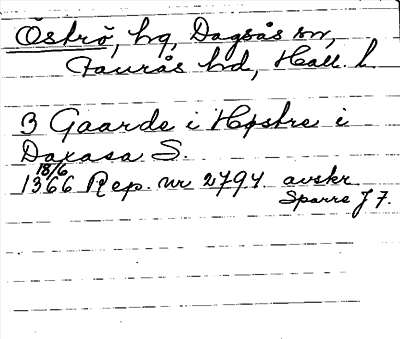 Öströ, hg, Dagsås sn,
Faurås hd, Hall. l.
3 Gaarde i Høstre i
Daxasa S.
18/6
1366 Rep. nr 2794 avskr.
Sparre J 7.